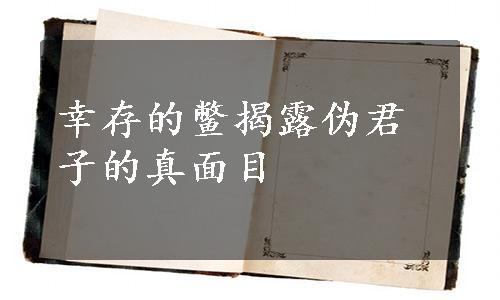 幸存的鳖揭露伪君
子的真面目